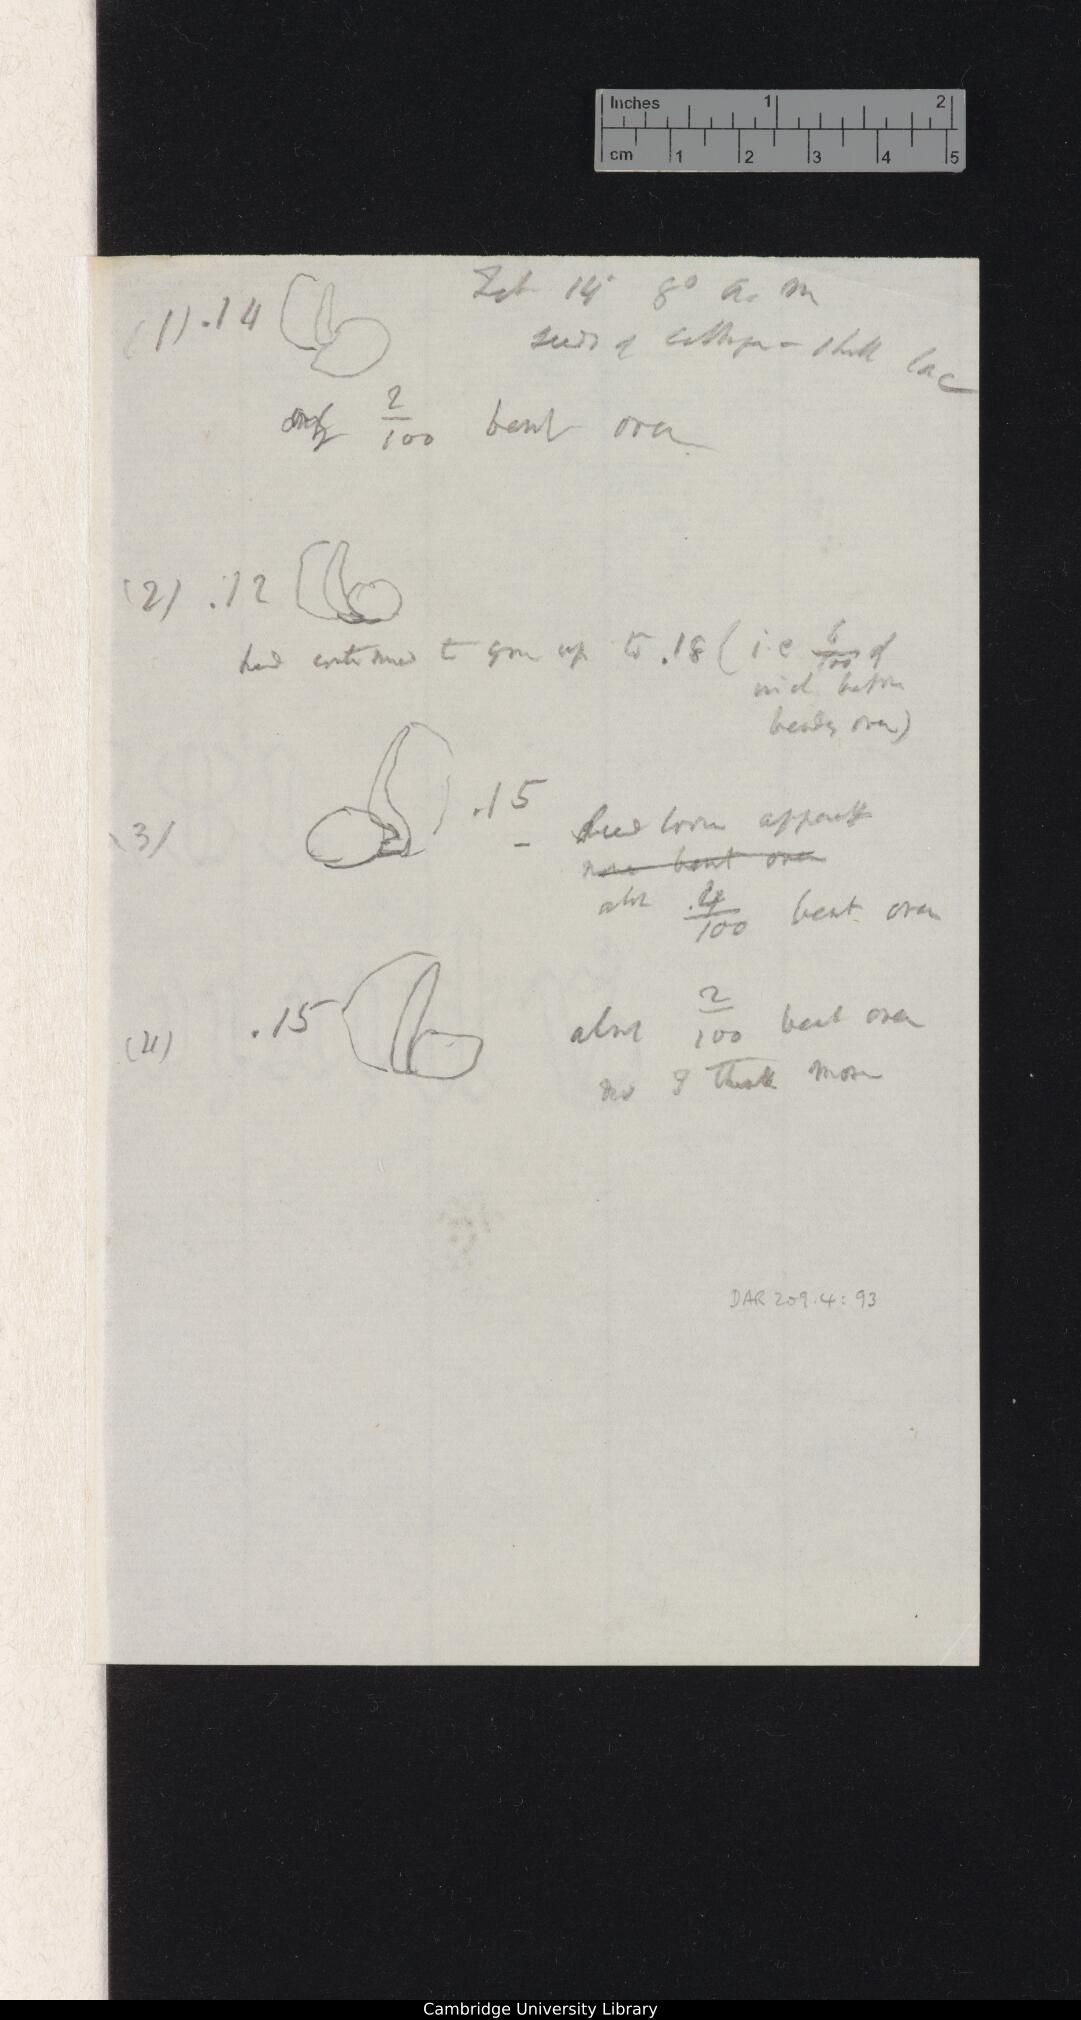 Inches 1 2
cm 1 2 3 4 5
Feb 14 8° A. M
(1) .14
seeds of cabbage - shell lac
only 2/100 bent over
(2) .12
had continued to grow up to .18 (i.e 6/100 of
inch before
bending over)
(3) .15
Seed loose
more bent over
abt 4/100 bent over
(4) .15 about 2/100 bent over
not I think more
DAR 209.4: 93
Cambridge University Library